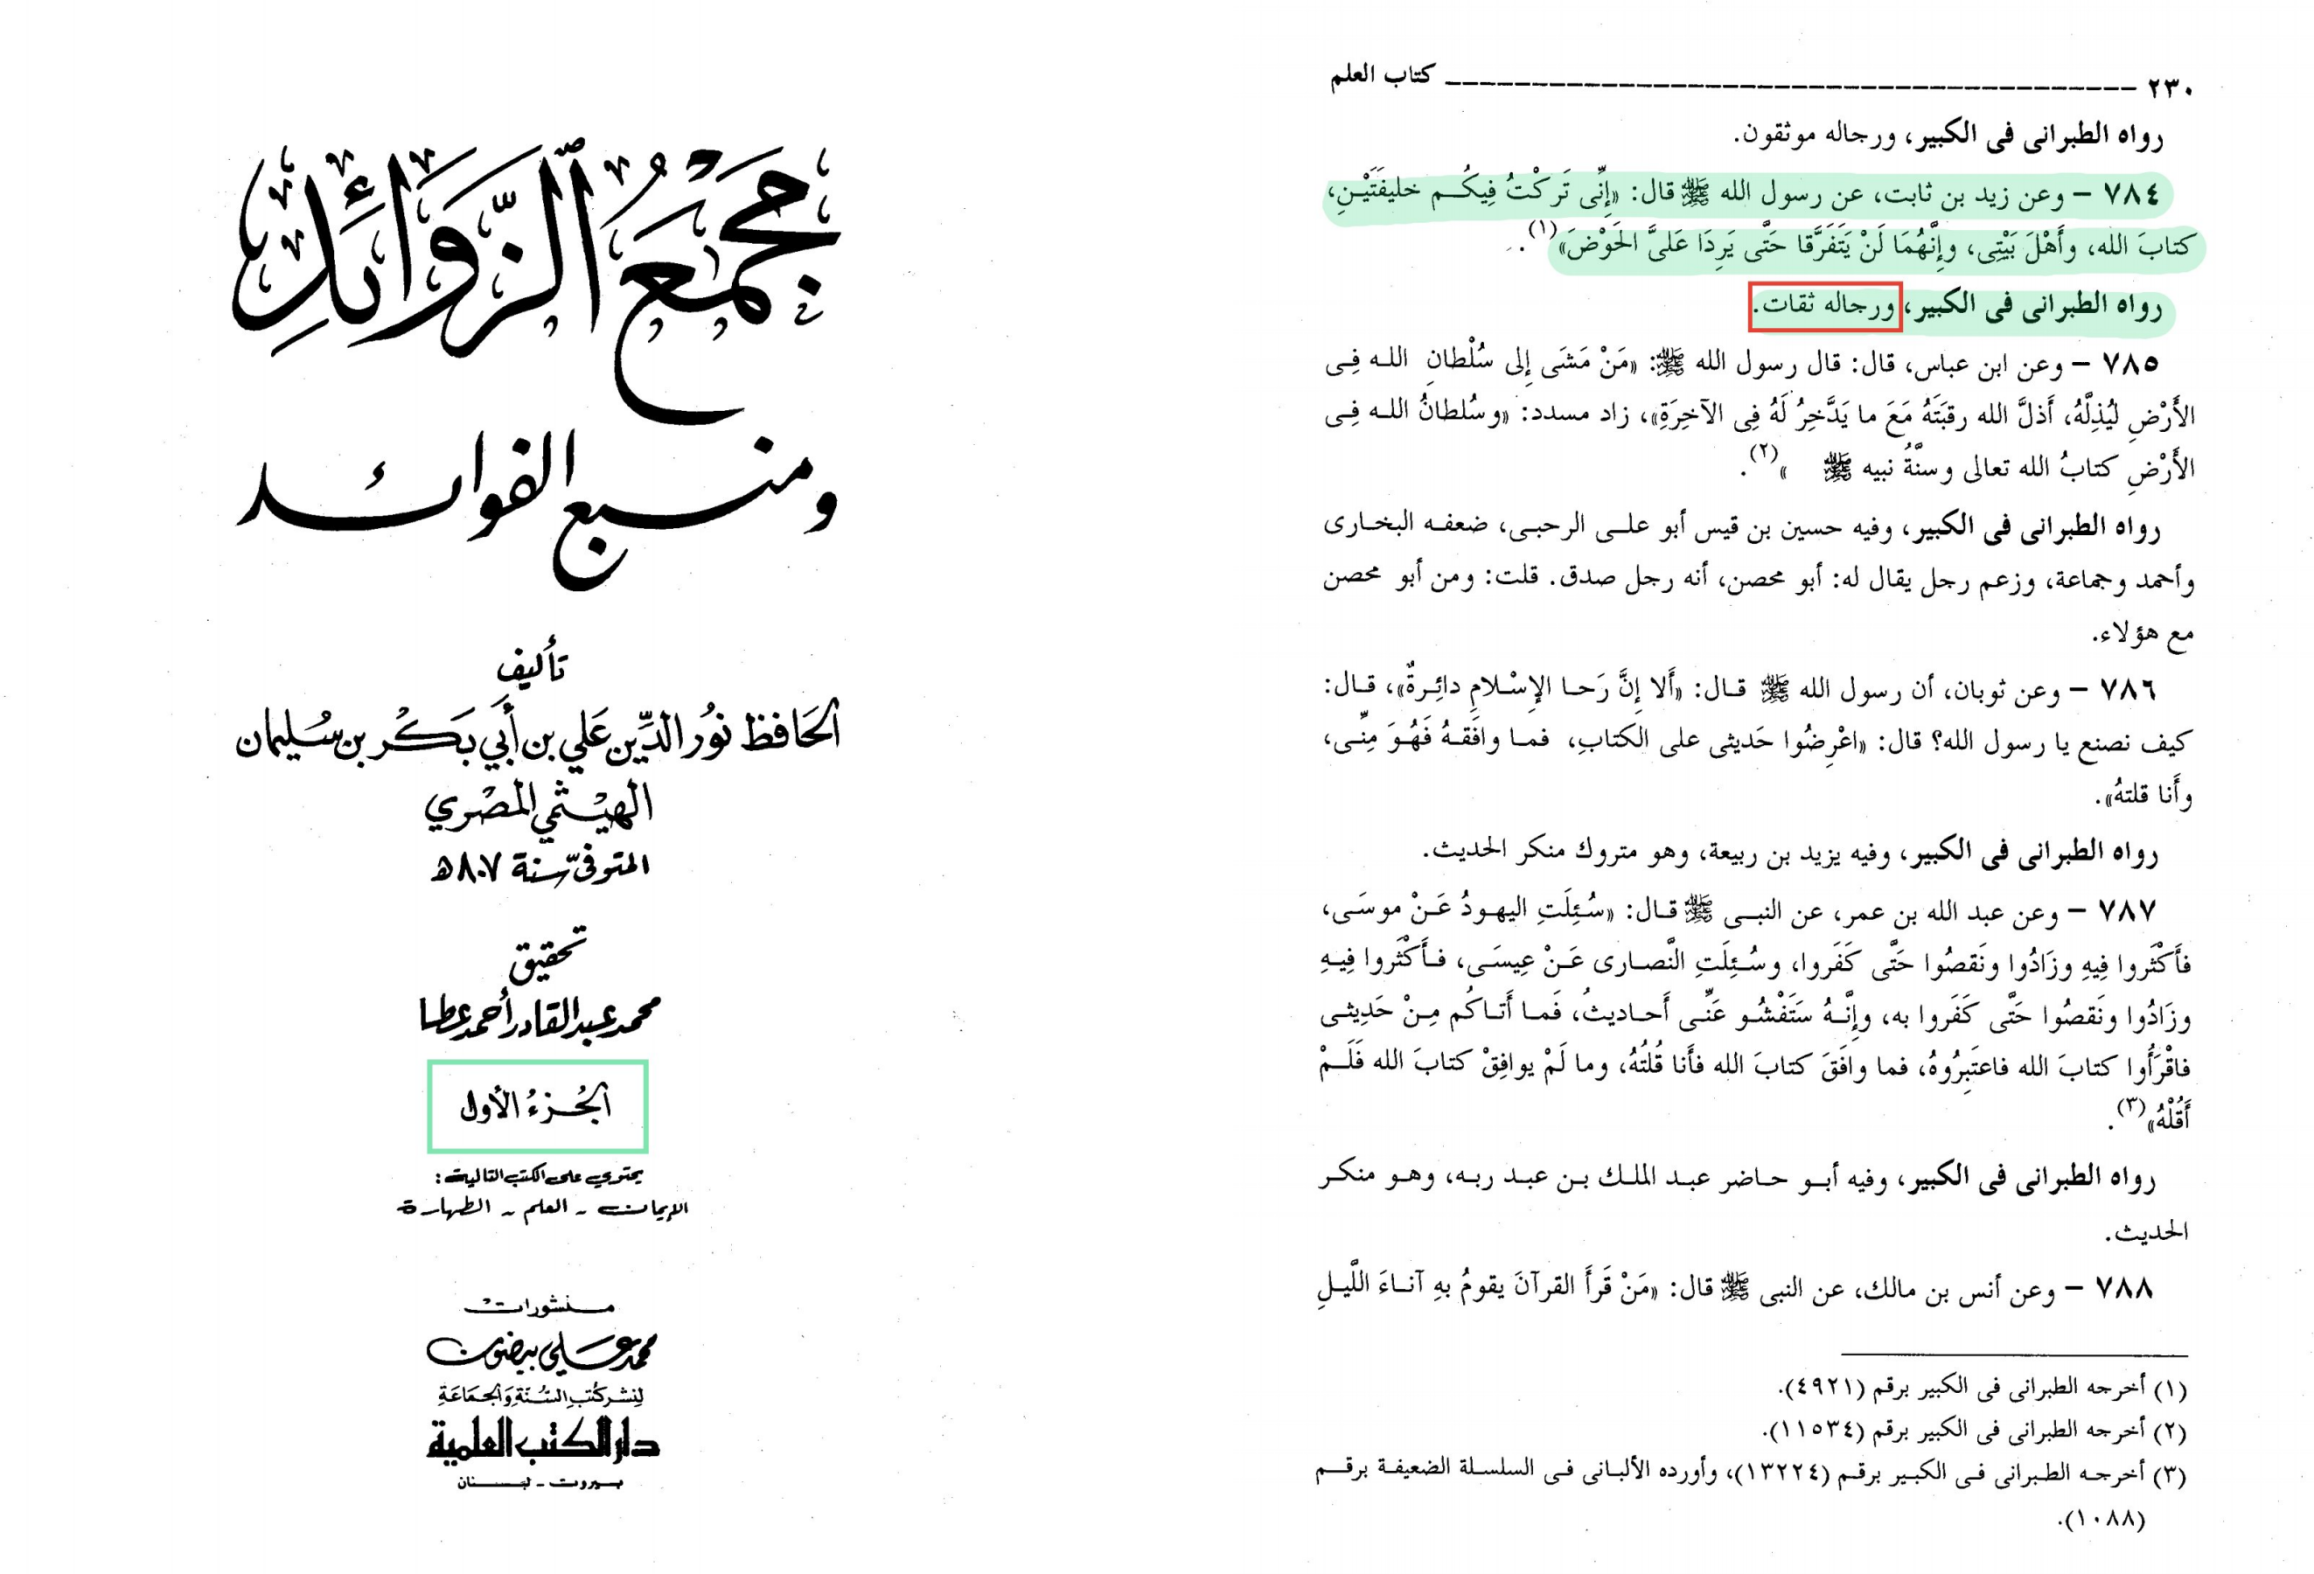 مجمع الزوائد
ومنبع الفوائد
تأليف
الحَافظ نُور الدِّين عَلي بن أَبي بَكْر بن سُليمان
الهيْثمي المصْري
المتوفىّ سنة ٨٠٧ھ
تحقيق
محمد عبد القادر أحمد عطا
الجُزءُ الأول
يحتوي على الكتب التالية:
الإيمان - العلم - الطهارة
منشورات
محمد علي بيضون
لنشر كتب السُّنَّة وَالجمَاعَة
دار الكتب العلمية
بيروت - لبنان
٢٣٠ ــــــــــــــــــــــــــــــــــــــــ كتاب العلم
رواه الطبرانى فى الكبير، ورجاله موثقون.
٧٨٤ – وعن زيد بن ثابت، عن رسول الله ﷺ قال: «إِنِّى تَركْتُ فِيكُم خليفَتَيْنِ،
كتابَ الله، وأَهْلَ بَيْتِى، وإِنَّهُمَا لَنْ يَتَفَرَّقا حَتَّى يَرِدَا عَلىَّ الحَوْضَ»(١).
رواه الطبرانى فى الكبير، ورجاله ثقات.
٧٨٥ – وعن ابن عباس، قال: قال رسول الله ﷺ: «مَنْ مَشَى إِلى سُلْطانِ اللـه فِى
الأَرْضِ لِيُذِلَّهُ، أَذلَّ الله رقبَتَهُ مَعَ ما يَدَّخِرُ لَهُ فِى الآخِرَةِ»، زاد مسدد: «وسُلطانُ اللـه فِى
الأَرْضِ كتابُ الله تعالى وسنَّةُ نبيه ﷺ »(٢).
رواه الطبرانى فى الكبير، وفيه حسين بن قيس أبو على الرحبى، ضعفه البخارى
وأحمد وجماعة، وزعم رجل يقال له: أبو محصن، أنه رجل صدق. قلت: ومن أبو محصن
مع هؤلاء.
٧٨٦ – وعن ثوبان، أن رسول الله ﷺ قال: «أَلا إِنَّ رَحـا الإِسْلامِ دائِرةٌ»، قال:
كيف نصنع يا رسول الله؟ قال: «اعْرِضُوا حَديثى على الكتابِ، فما وافَقهُ فَهُوَ مِنِّى،
وأَنا قلتهُ».
رواه الطبرانى فى الكبير، وفيه يزيد بن ربيعة، وهو متروك منكر الحديث.
٧٨٧ – وعن عبد الله بن عمر، عن النبى ﷺ قال: «سُئِلَتِ اليهودُ عَنْ موسَى،
فأَكْثَروا فِيهِ وزَادُوا ونَقصُوا حَتَّى كَفَروا، وسُئِلَتِ النَّصارى عَنْ عِيسَى، فأَكْثَروا فِيهِ
وزَادُوا ونَقصُوا حَتَّى كَفَروا به، وإِنَّهُ سَتَفْشُو عَنِّى أَحاديثُ، فَما أَتاكُم مِنْ حَدِيثى
فاقْرَأُوا كتابَ الله فاعتَبِرُوهُ، فما وافَقَ كتابَ الله فأَنا قُلتُهُ، وما لَمْ يوافِقْ كتابَ الله فَلَمْ
أَقُلْهُ»(٣).
رواه الطبرانى فى الكبير، وفيه أبو حاضر عبد الملك بن عبد ربه، وهو منكر
الحديث.
٧٨٨ – وعن أنس بن مالك، عن النبى ﷺ قال: «مَنْ قَرأَ القرآنَ يقومُ بهِ آناءَ اللَّيلِ
(١) أخرجه الطبرانى فى الكبير برقم (٤٩٢١).
(٢) أخرجه الطبرانى فى الكبير برقم (١١٥٣٤).
(٣) أخرجه الطبرانى فى الكبير برقم (١٣٢٢٤)، وأورده الألبانى فى السلسلة الضعيفة برقم
(١٠٨٨).